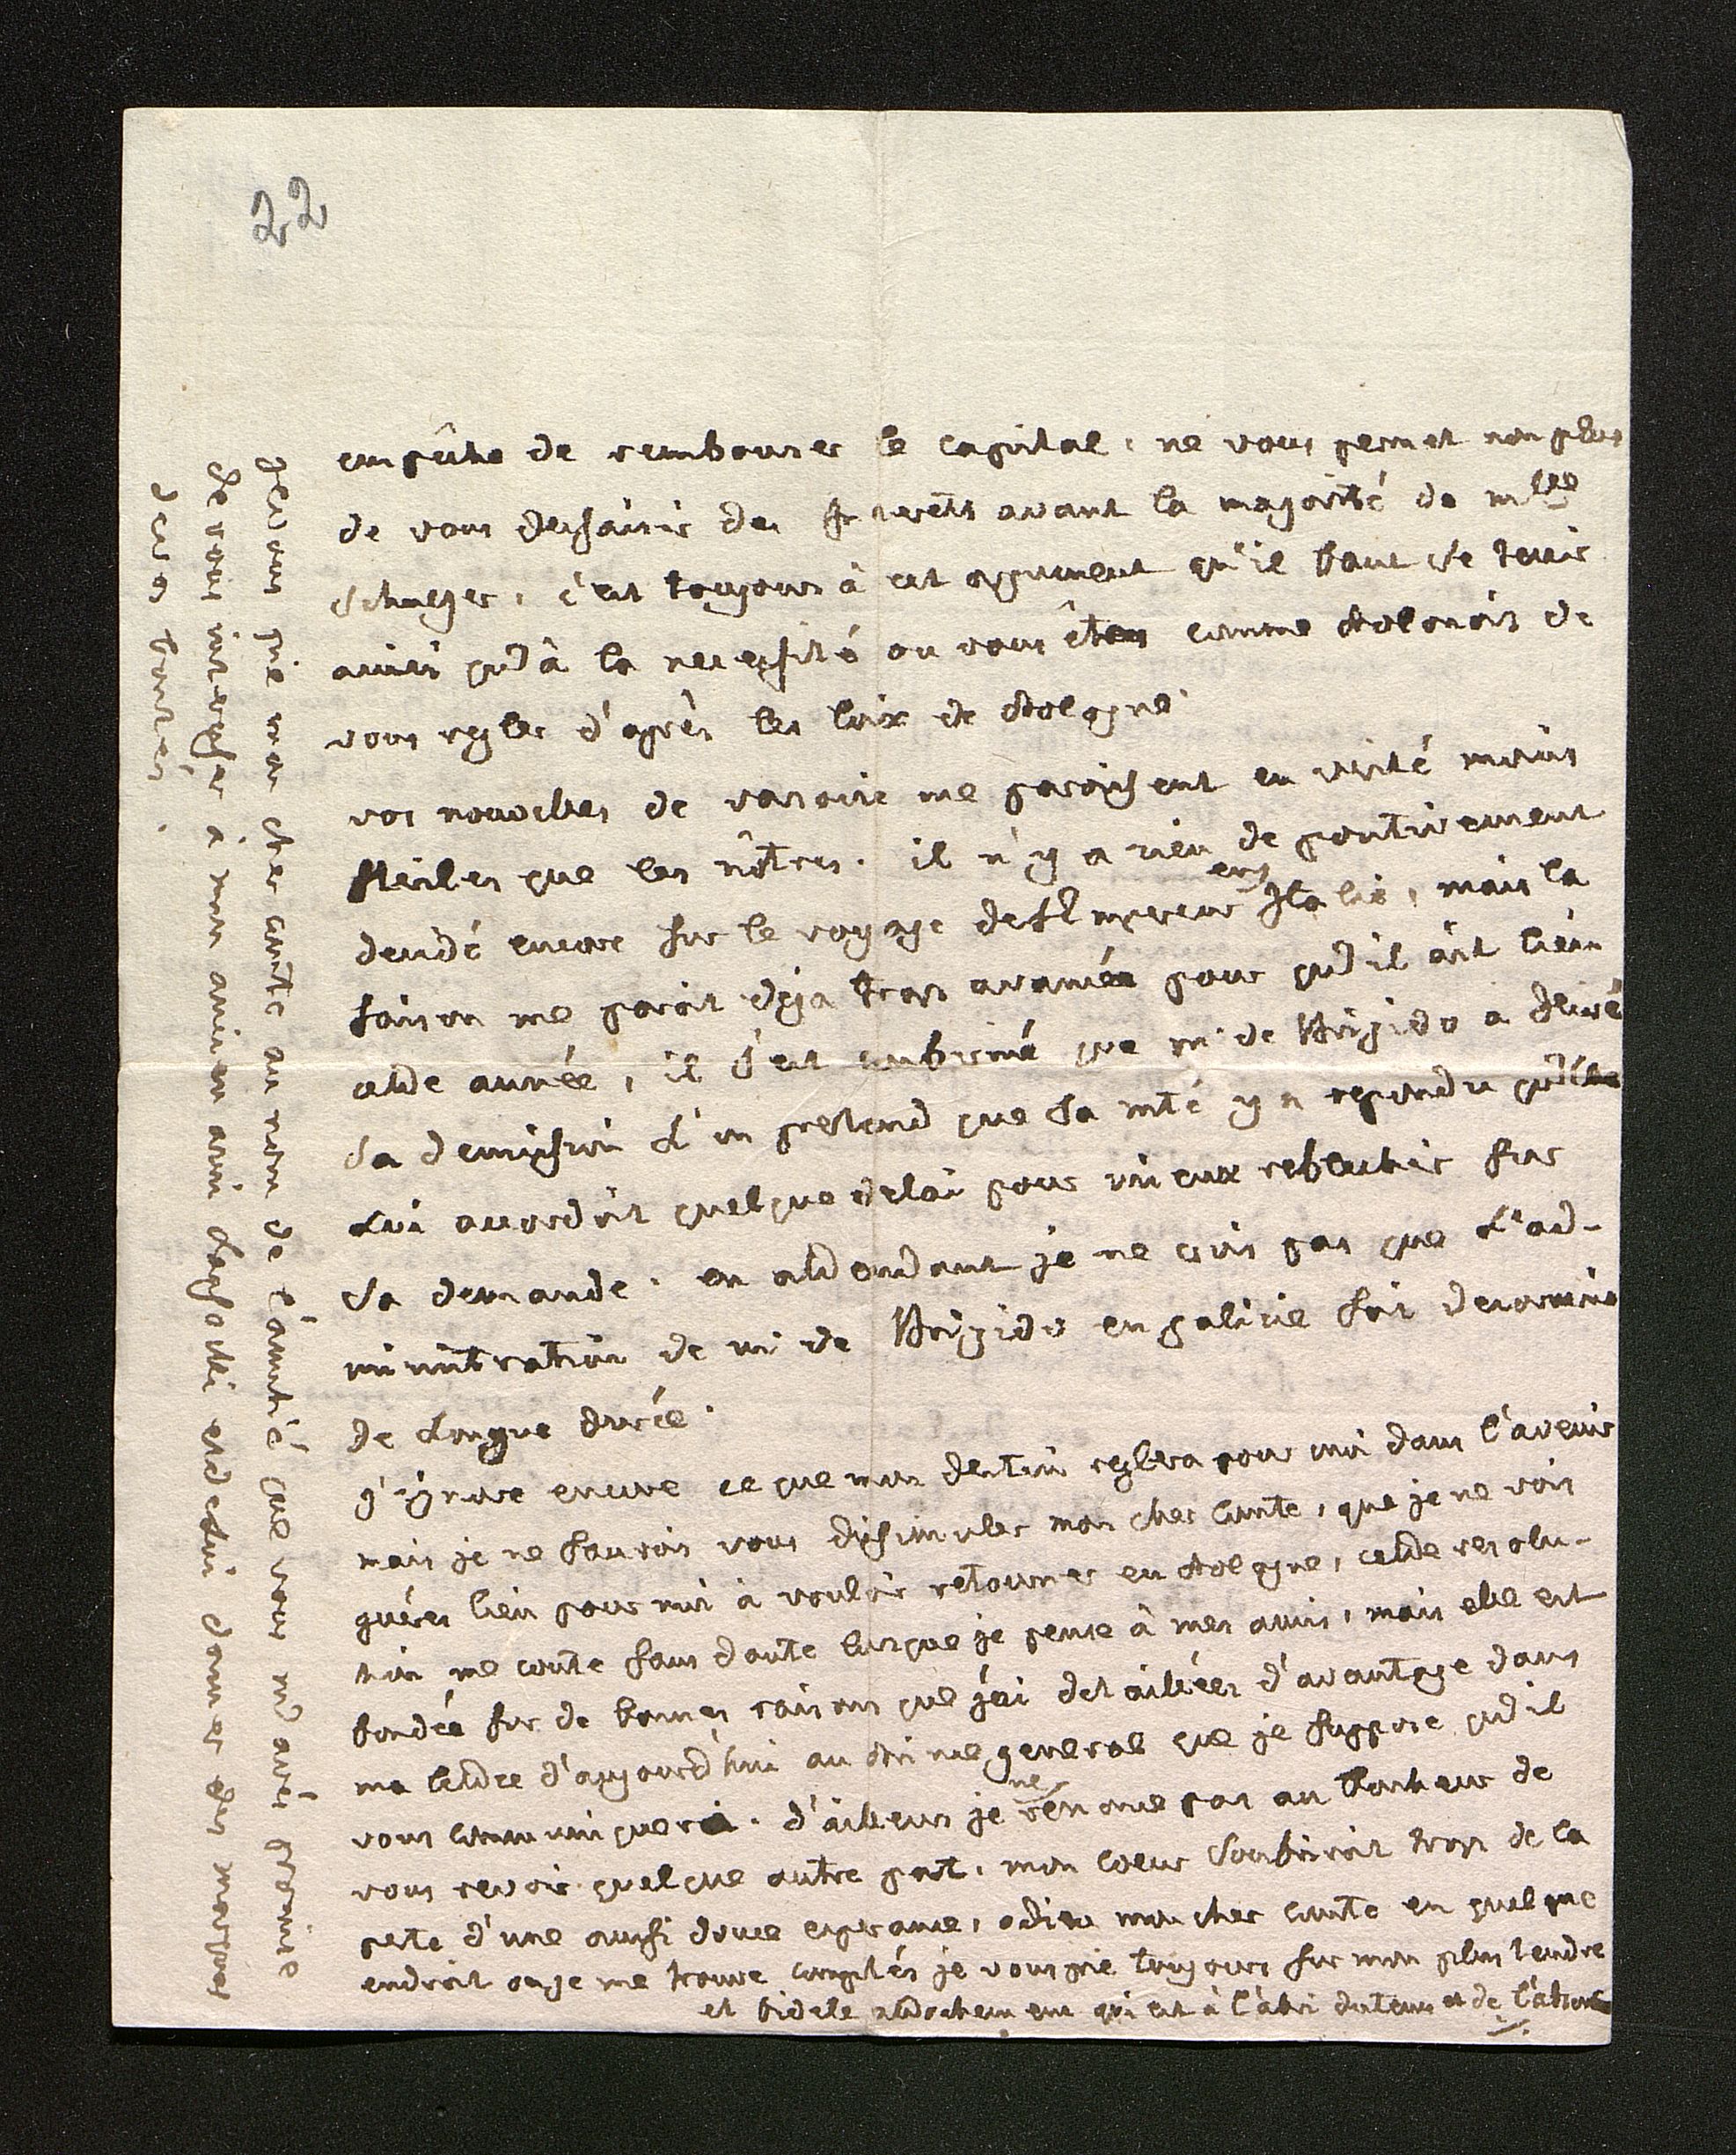 22
empêche de rembourser le capital, ne vous permet non plus
de vous dessaisir des interets avant la majorité de mlle
Schulzer, c'est toujours à cet argument qu'il faut se tenir
ainsi qu'à la necessité ou vous êtes comme Polonois de
vous regler d'après les loix de Pologne.
vos nouvelles de varsovie me paroissent en verité moins
steriles que les nôtres. il n'y a rien de positivement
decidé encore sur le voyage de l'Empereur en Italie, mais la
saison me paroit deja trop avancée pour qu'il ait lieu
cette année, il s'est confirmé que mr de Brigido a desiré
sa demission & on pretend que Sa mté y a repondu qu'elle
lui accordoit quelque delai pour mieux reflechir sur
sa demande. en attendant je ne crois pas que l'ad-
ministration de mr de Brigido en galicie soit desormais
de longue durée.
j'ignore encore ce que mon destin reglera pour moi dans l'avenir
mais je ne saurois vous dissimuler mon cher comte, que je ne vois
guères lieu pour moi à vouloir retourner en Pologne, cette resolu-
tion me coute sans doute lorsque je pense à mes amis, mais elle est
fondée sur de bonnes raisons que j'ai detaillées d'avantage dans
ma lettre d'aujourd'hui au Prince general que je suppose qu'il
vous communiquera. d'ailleurs je ne renonce pas au bonheur de
vous revoir quelque autre part, mon coeur souffriroit trop de la
perte d'une aussi douce esperance, adieu mon cher comte en quelque
endroit ou je me trouve comptés je vous prie toujours sur mon plus tendre
et fidele attachement qui est à l'abri du tems et de l'absence
je vous prie mon cher comte au nom de l'amitié que vous m'avés promise
de vous interesser à mon ancien ami et de lui donner des marques
de vos bontés.